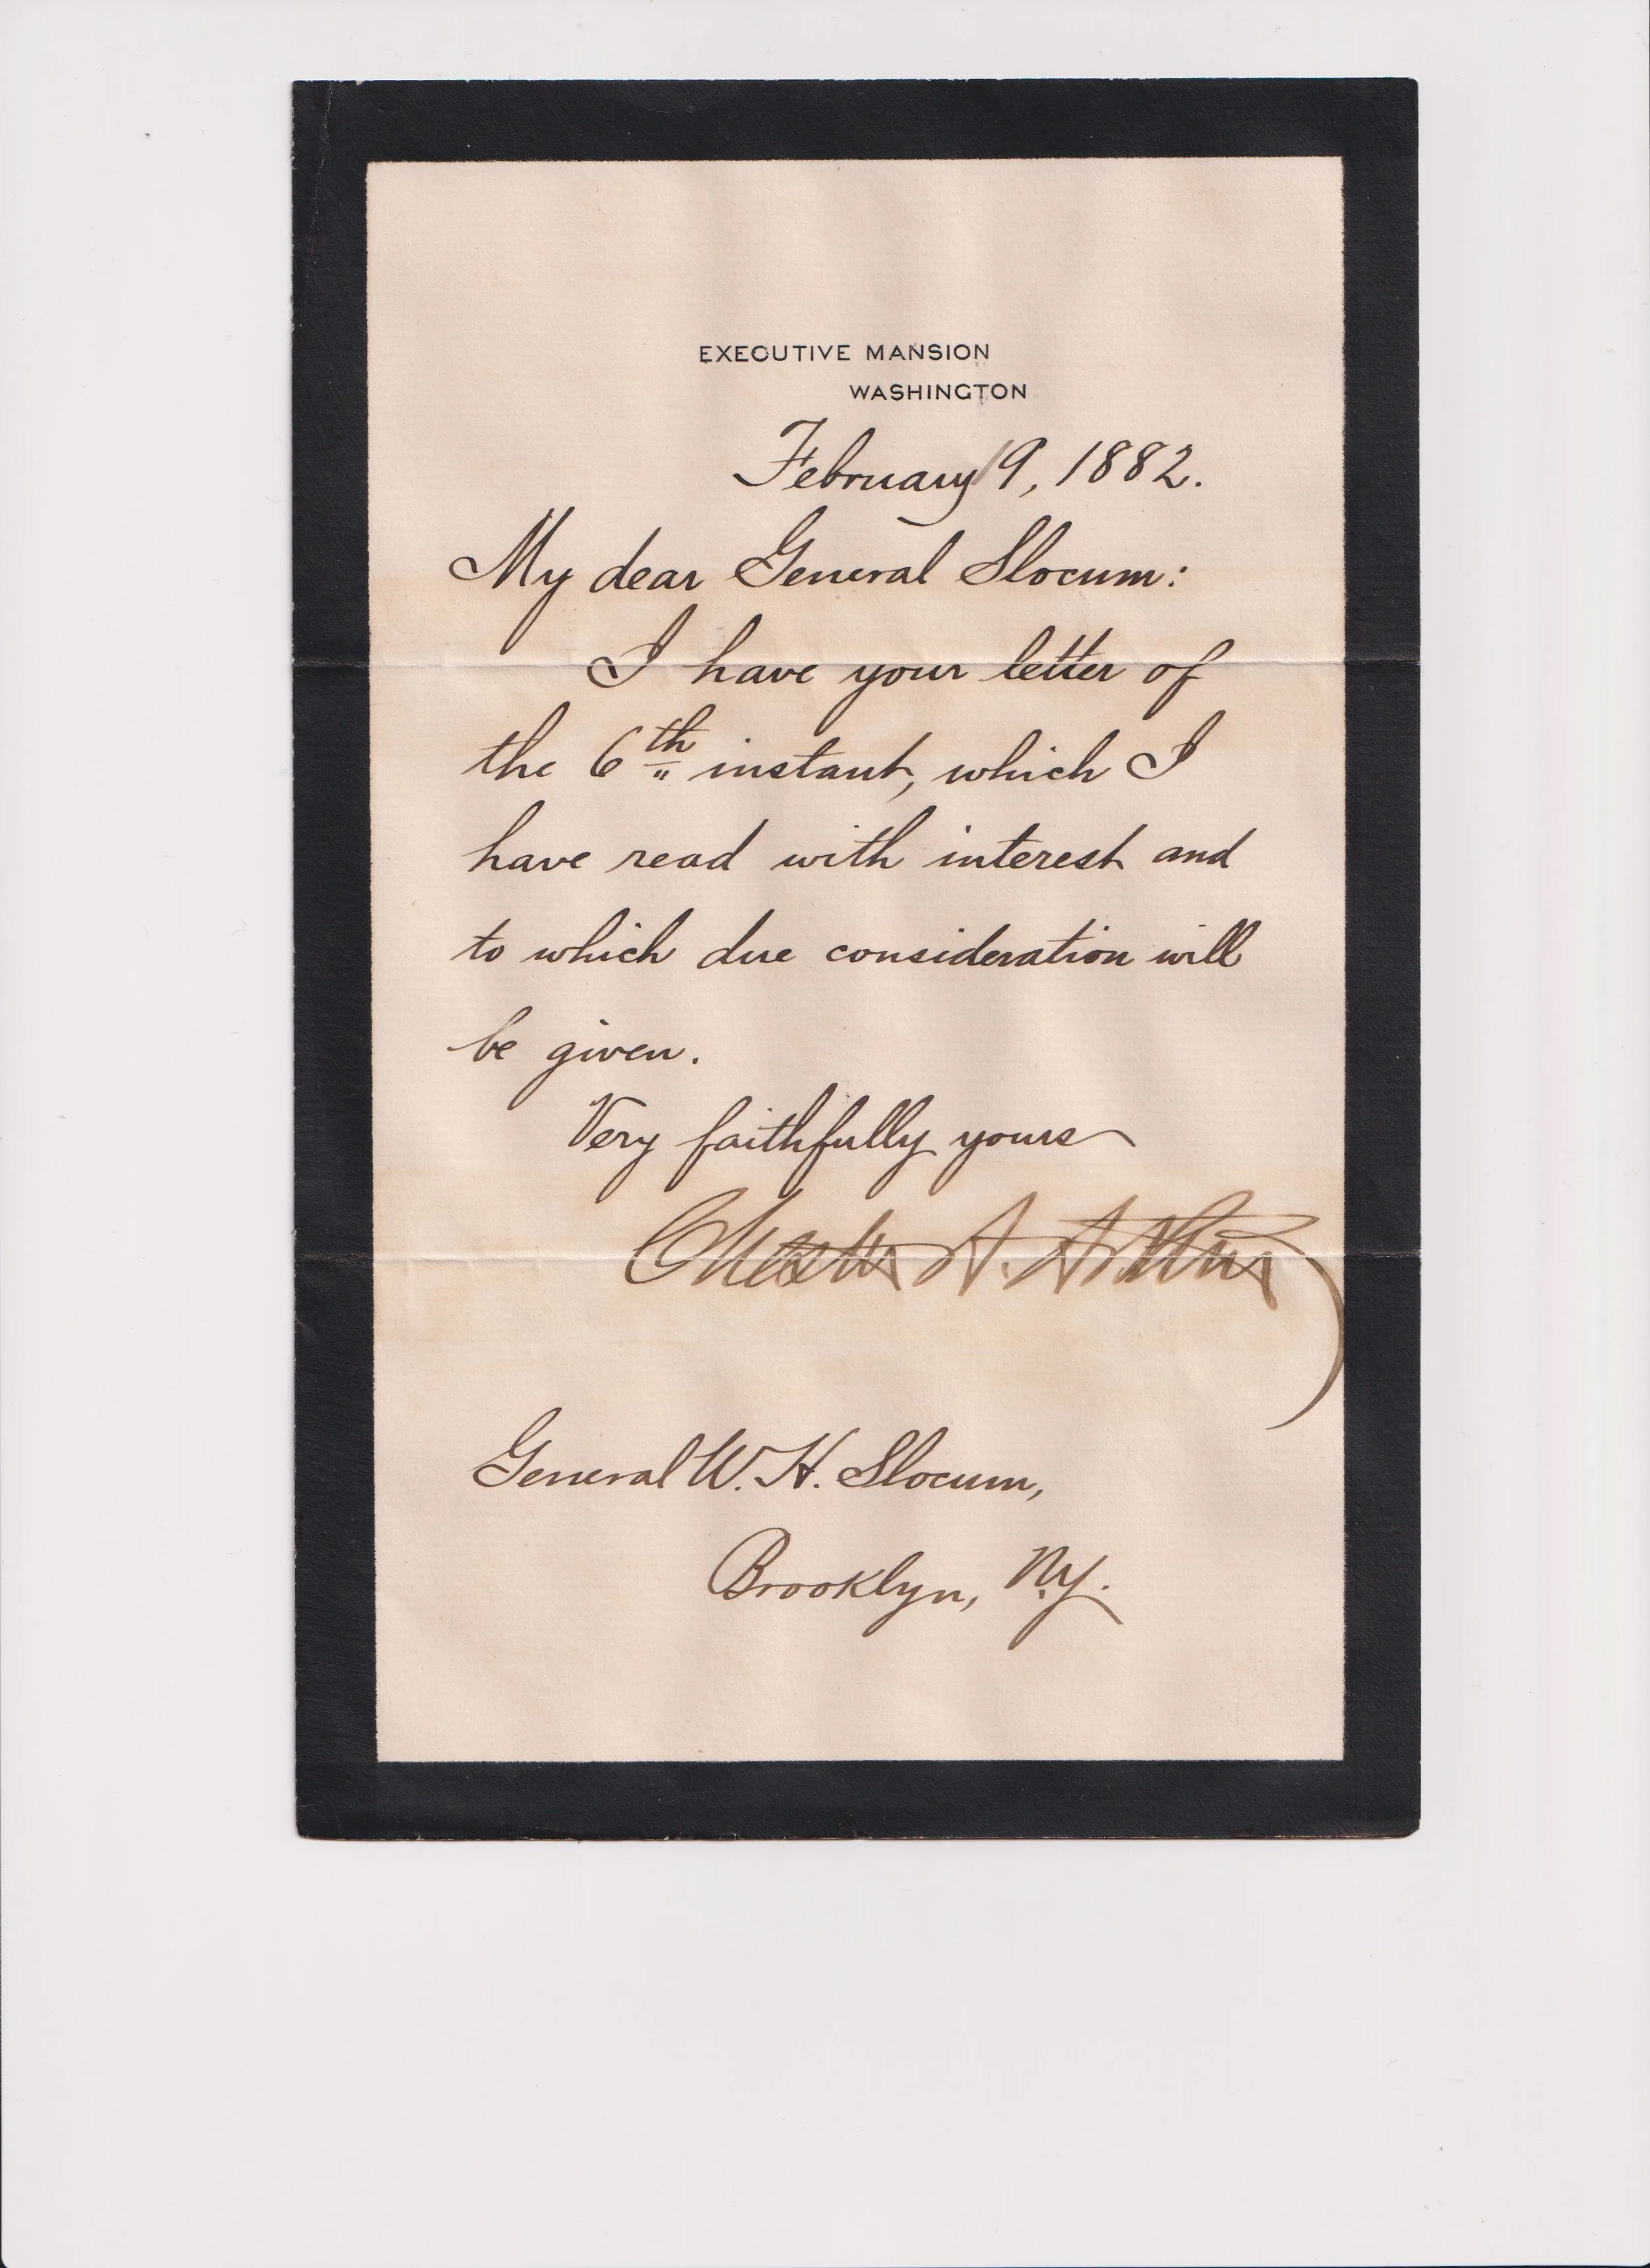 EXECUTIVE MANSION
WASHINGTON
February 9, 1882.
My dear General Slocum:
I have your letter of
the 6th instant, which I
have read with interest and
to which due consideration will
be given.
Very faithfully yours
Chester A. Arthur
General W. H. Slocum,
Brooklyn, N.Y.